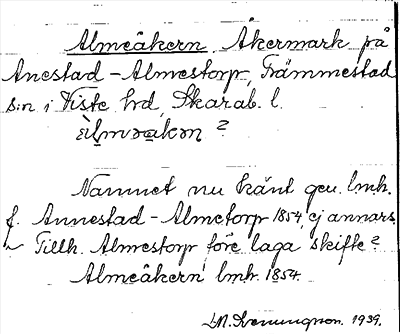 Almeåkern. Åkermark på
Anestad-Almestorp, Främmestad
s:n i Viste hrd, Skarab. l.
?
Namnet nu känt gen. lmh.
f. Annestad-Almetorp 1854, ej annars.
Tillh. Almestorp före laga skifte?
Almeåkern lmh. 1854.
1939.